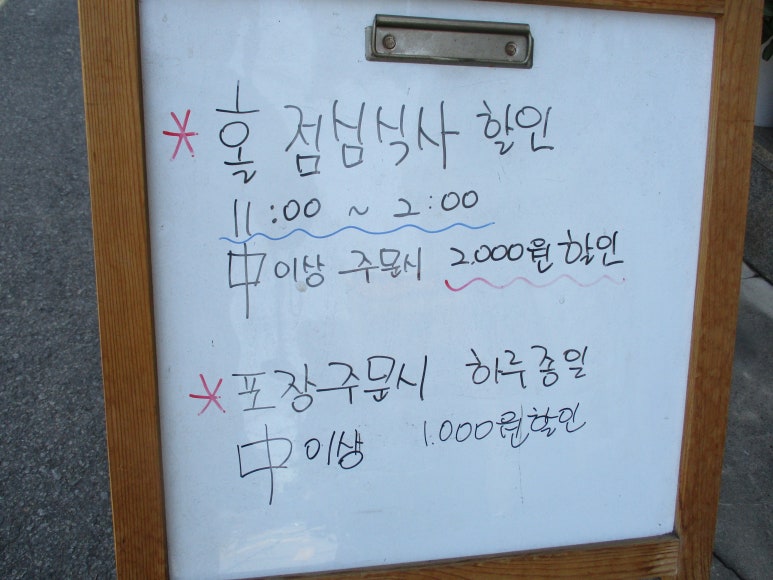 * 홀 점심식사 할인
11:00 ~ 2:00
中이상 주문시 2,000원 할인
* 포장주문시 하루종일
中이상 1,000원 할인